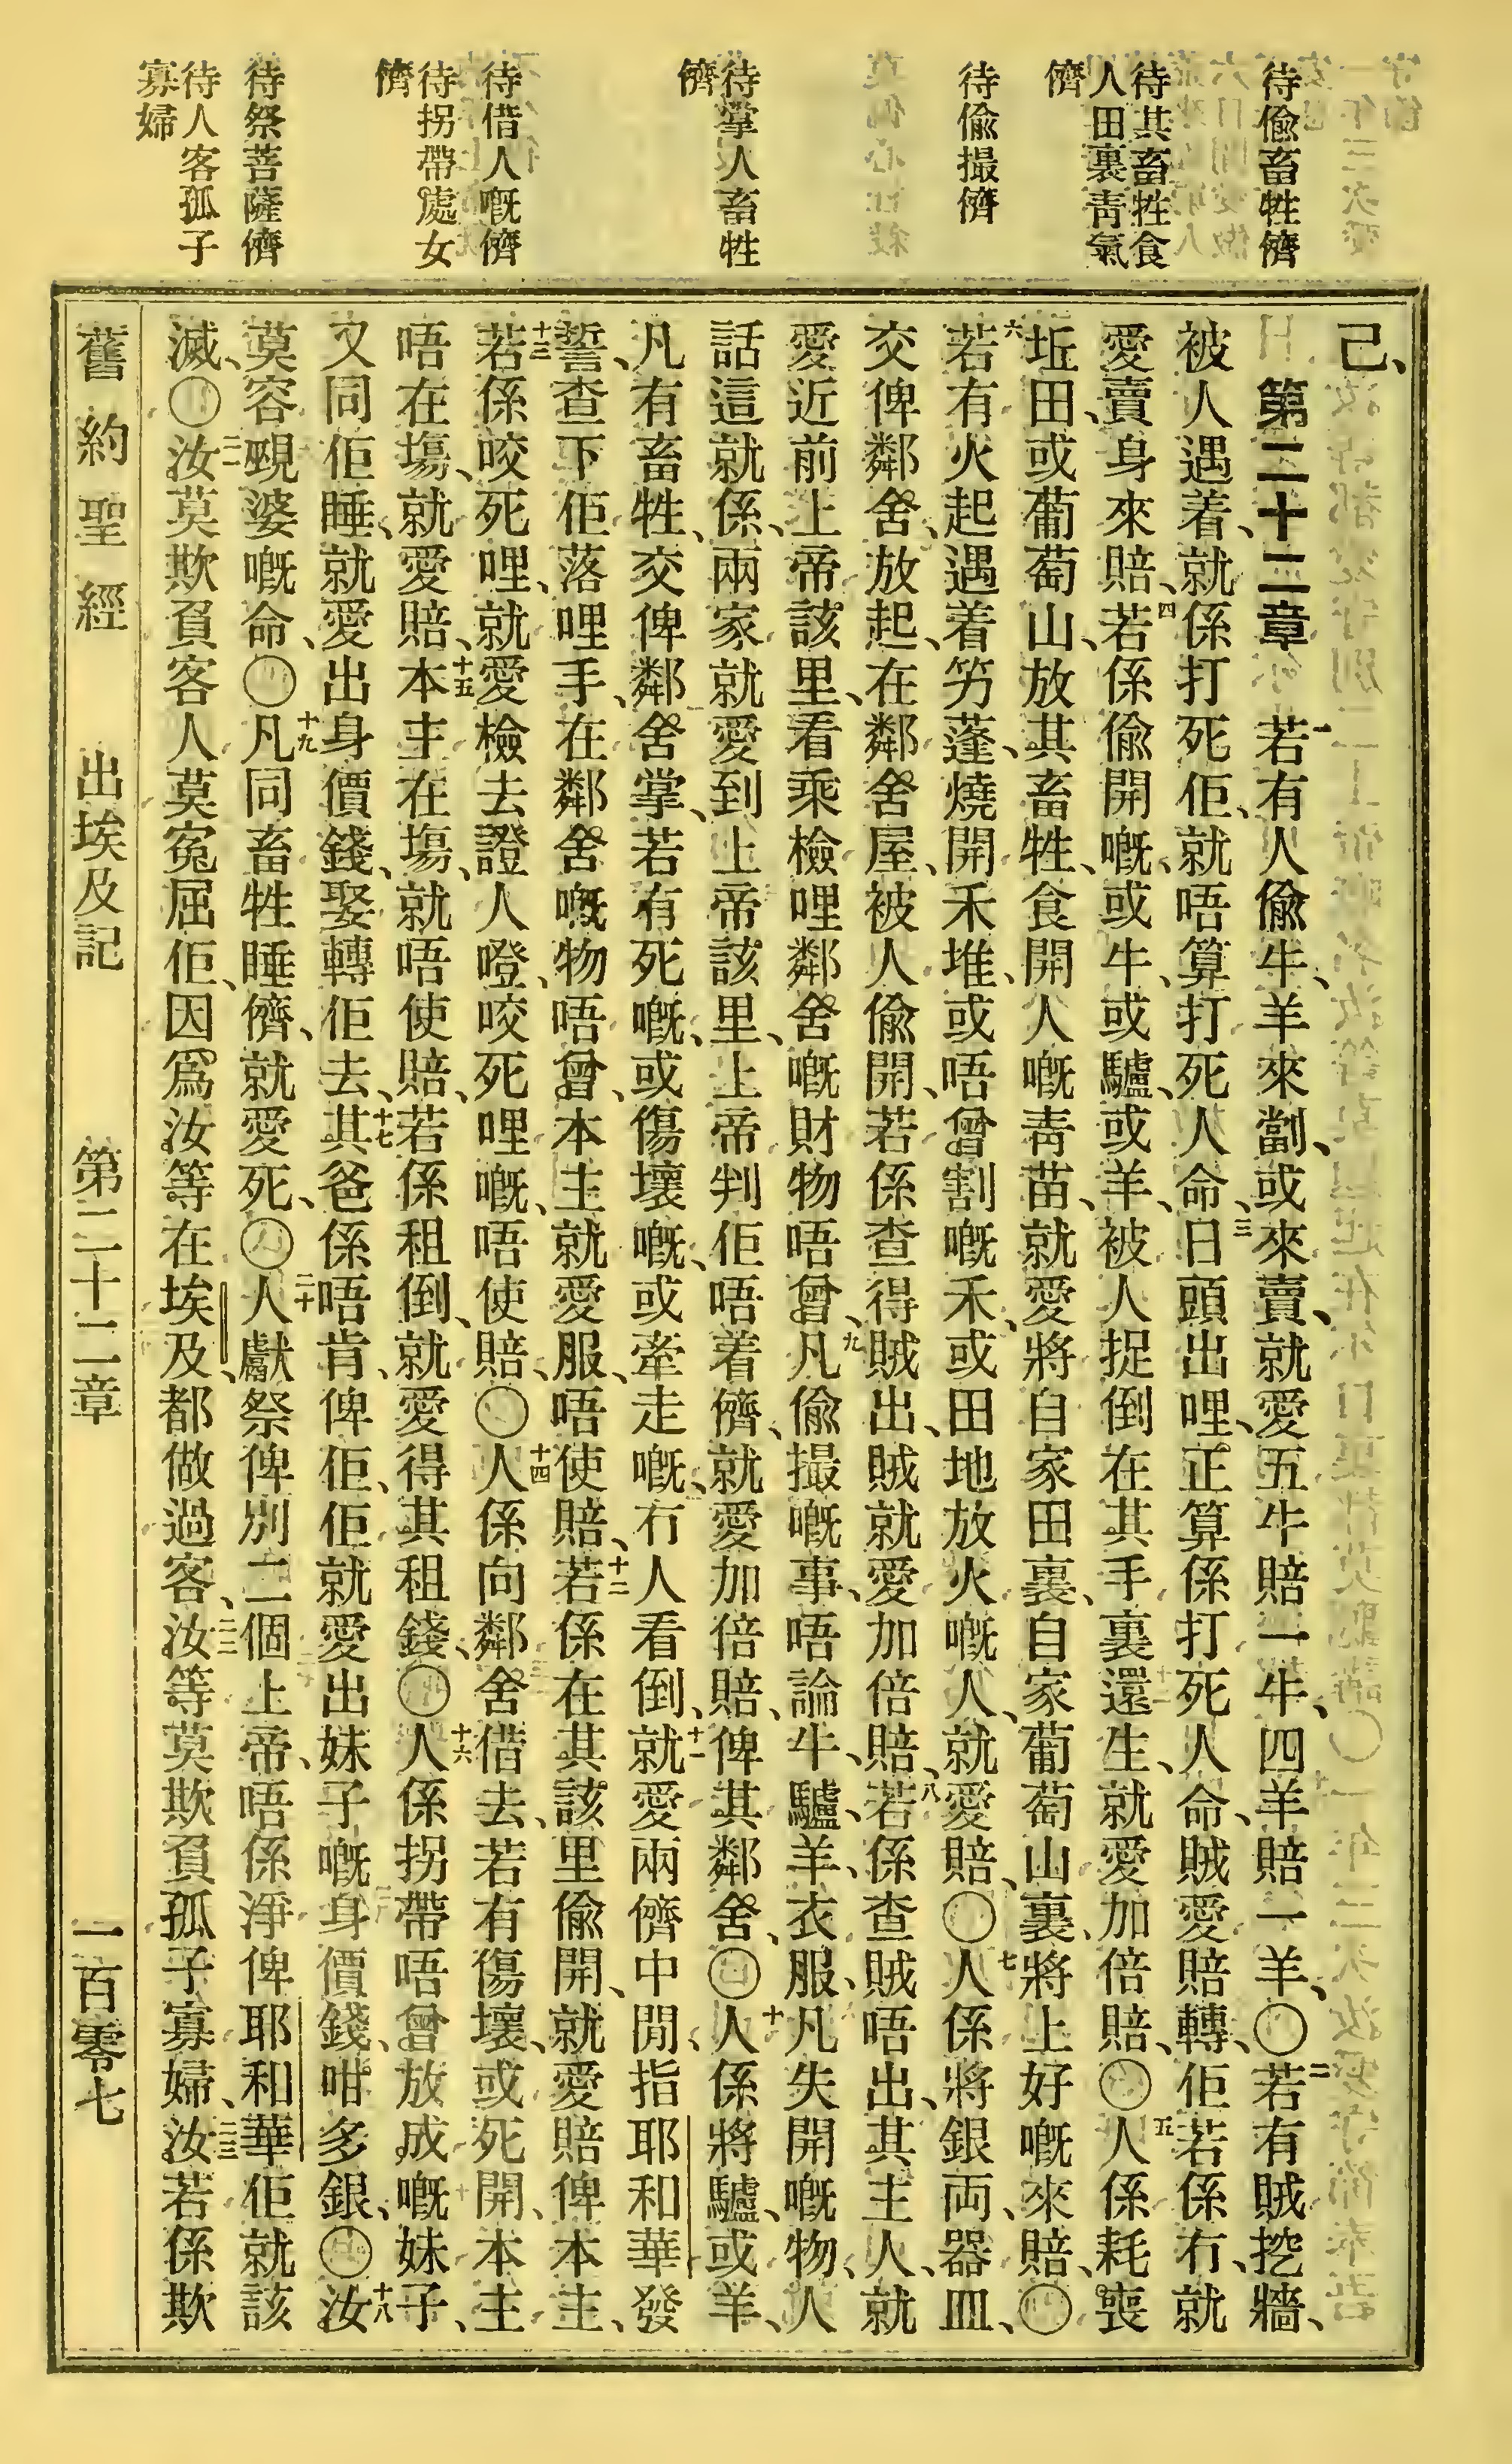 待偷畜牲儕
待其畜牲食
人田裏靑氣
儕
待偷撮儕
待掌人畜牲
儕
待借人嘅儕
待拐帶處女
儕
待祭菩薩儕
待人客孤子
寡婦
己、
第二十二章 一若有人偷牛、羊來劏、或來賣、就愛五牛賠一牛、四羊賠一羊、〇二若有賊挖牆、
被人遇着、就係打死佢、就唔算打死人命、三日頭出哩、正算係打死人命、賊愛賠轉、佢若係冇、就
愛賣身來賠、四若係偷開嘅、或牛、或驢、或羊、被人捉倒在其手裏還生、就愛加倍賠、〇五人係耗喪
坵田、或葡萄山、放其畜牲、食開人嘅靑苗、就愛將自家田裏、自家葡萄山裏、將上好嘅來賠、〇
六若有火起遇着竻蓬、燒開禾堆、或唔曾割嘅禾、或田地放火嘅人、就愛賠、〇七人係將銀両、器皿、
交俾鄰舍、放起、在鄰舍屋、被人偷開、若係查得賊出、賊就愛加倍賠、八若係查賊唔出、其主人、就
愛近前上帝該里、看乘檢哩鄰舍嘅財物唔曾、九凡偷撮嘅事、唔論牛、驢、羊、衣服、凡失開嘅物、人
話這就係、兩家就愛到上帝該里、上帝判佢唔着儕、就愛加倍賠、俾其鄰舍、〇十人係將驢、或羊、
凡有畜牲、交俾鄰舍掌、若有死嘅、或傷壞嘅、或牽走嘅、冇人看倒、十一就愛兩儕中閒、指耶和華發
誓、查下佢落哩手、在鄰舍嘅物唔曾、本主就愛服、唔使賠、十二若係在其該里偷開、就愛賠俾本主、
十三若係咬死哩、就愛檢去證人噔、咬死哩嘅、唔使賠、〇十四人係向鄰舍借去、若有傷壞、或死開、本主
唔在塲、就愛賠、十五本主在塲、就唔使賠、若係租倒、就愛得其租錢、〇十六人係拐帶唔曾放成嘅妹子、
又同佢睡、就愛出身價錢、娶轉佢去、十七其爸係唔肯俾佢、佢就愛出妹子嘅身價錢、咁多銀、〇十八汝
莫容覡婆嘅命、〇十九凡同畜牲睡儕、就愛死、〇二十人獻祭俾別二個上帝、唔係淨俾耶和華佢就該
滅、〇二一汝莫欺負客人、莫寃屈佢、因爲汝等在埃及、都做過客、二二汝等莫欺負孤子寡婦、二三汝若係欺
舊約聖經 出埃及記 第二十二章 一百零七